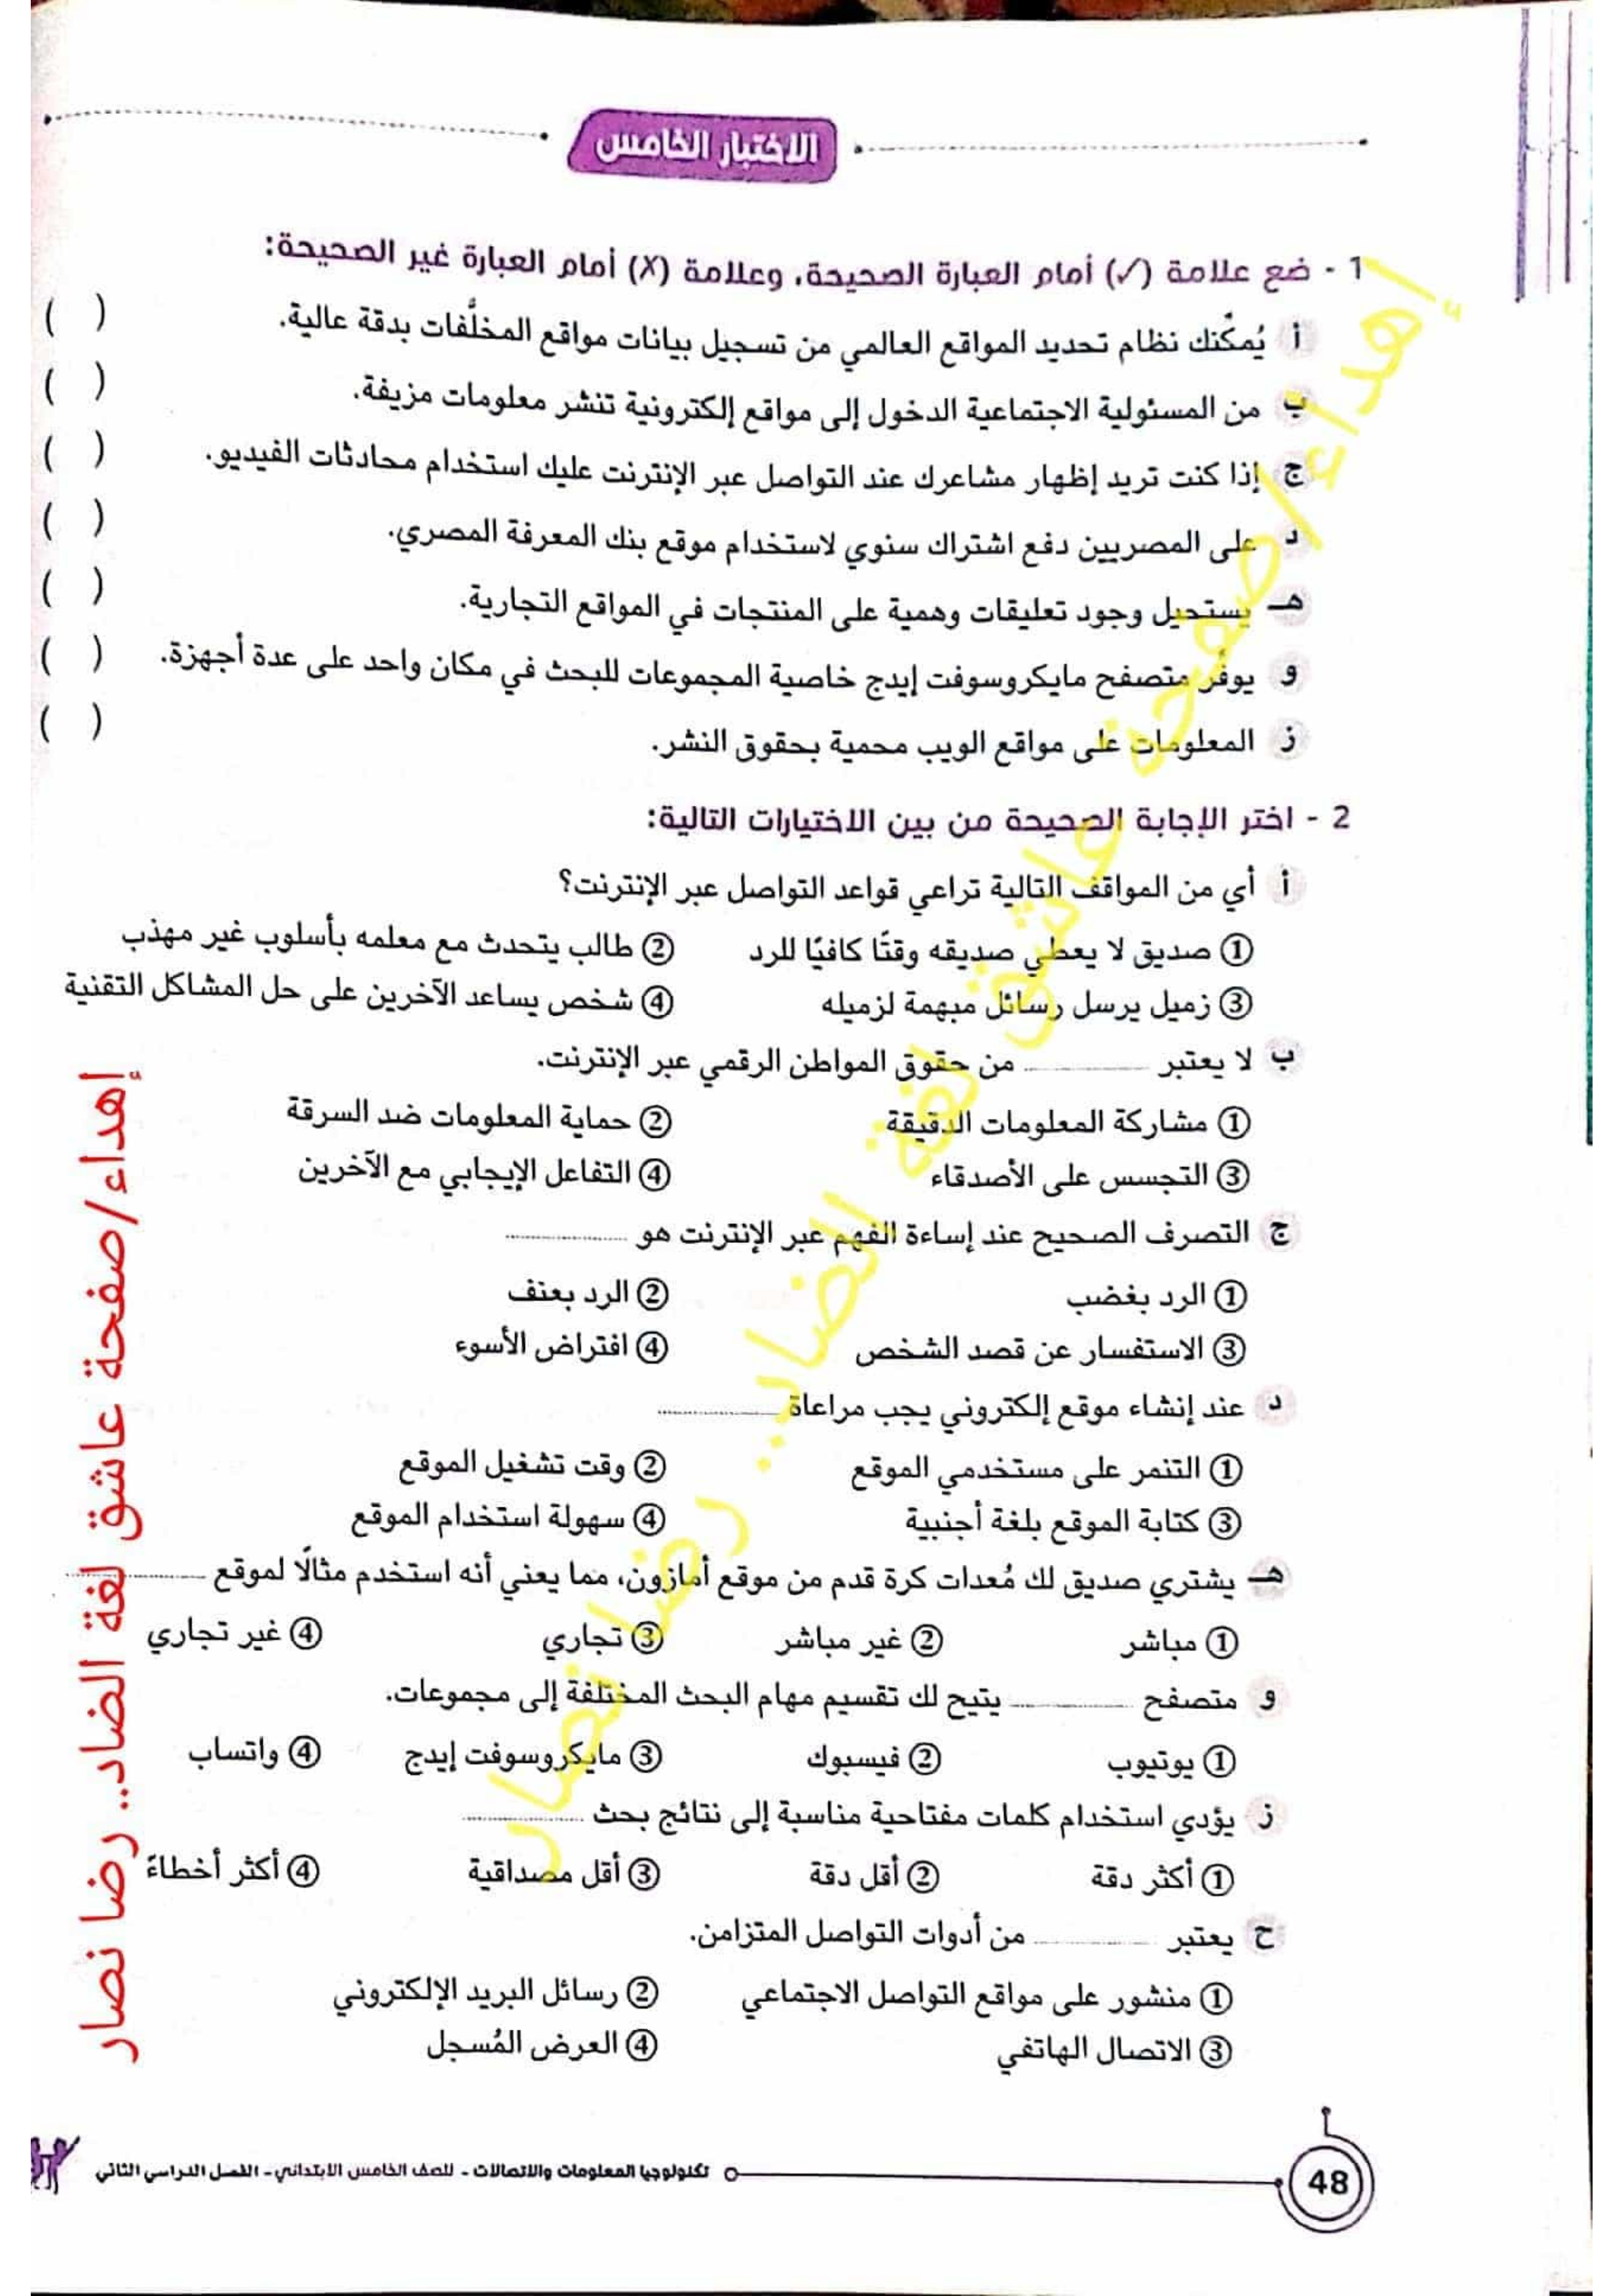 الاختبار الخامس
1 - ضع علامة (✓) أمام العبارة الصحيحة، وعلامة (X) أمام العبارة غير الصحيحة:
أ يُمكّنك نظام تحديد المواقع العالمي من تسجيل بيانات مواقع المخلَّفات بدقة عالية. ( )
ب من المسئولية الاجتماعية الدخول إلى مواقع إلكترونية تنشر معلومات مزيفة. ( )
ج إذا كنت تريد إظهار مشاعرك عند التواصل عبر الإنترنت عليك استخدام محادثات الفيديو. ( )
د على المصريين دفع اشتراك سنوي لاستخدام موقع بنك المعرفة المصري. ( )
هـ يستحيل وجود تعليقات وهمية على المنتجات في المواقع التجارية. ( )
و يوفّر متصفح مايكروسوفت إيدج خاصية المجموعات للبحث في مكان واحد على عدة أجهزة. ( )
ز المعلومات على مواقع الويب محمية بحقوق النشر. ( )
2 - اختر الإجابة الصحيحة من بين الاختيارات التالية:
أ أي من المواقف التالية تراعي قواعد التواصل عبر الإنترنت؟
① صديق لا يعطي صديقه وقتًا كافيًا للرد ② طالب يتحدث مع معلمه بأسلوب غير مهذب
③ زميل يرسل رسائل مبهمة لزميله ④ شخص يساعد الآخرين على حل المشاكل التقنية
ب لا يعتبر ............ من حقوق المواطن الرقمي عبر الإنترنت.
① مشاركة المعلومات الدقيقة ② حماية المعلومات ضد السرقة
③ التجسس على الأصدقاء ④ التفاعل الإيجابي مع الآخرين
ج التصرف الصحيح عند إساءة الفهم عبر الإنترنت هو ............
① الرد بغضب ② الرد بعنف
③ الاستفسار عن قصد الشخص ④ افتراض الأسوء
د عند إنشاء موقع إلكتروني يجب مراعاة ............
① التنمر على مستخدمي الموقع ② وقت تشغيل الموقع
③ كتابة الموقع بلغة أجنبية ④ سهولة استخدام الموقع
هـ يشتري صديق لك مُعدات كرة قدم من موقع أمازون، مما يعني أنه استخدم مثالًا لموقع ............
① مباشر ② غير مباشر ③ تجاري ④ غير تجاري
و متصفح ............ يتيح لك تقسيم مهام البحث المختلفة إلى مجموعات.
① يوتيوب ② فيسبوك ③ مايكروسوفت إيدج ④ واتساب
ز يؤدي استخدام كلمات مفتاحية مناسبة إلى نتائج بحث ............
① أكثر دقة ② أقل دقة ③ أقل مصداقية ④ أكثر أخطاءً
ح يعتبر ............ من أدوات التواصل المتزامن.
① منشور على مواقع التواصل الاجتماعي ② رسائل البريد الإلكتروني
③ الاتصال الهاتفي ④ العرض المُسجل
48 تكنولوجيا المعلومات والاتصالات - للصف الخامس الابتدائي - الفصل الدراسي الثاني
إهداء/صفحة عاشق لغة الضاد.. رضا نصار
إهداء/صفحة عاشق لغة الضاد.. رضا نصار